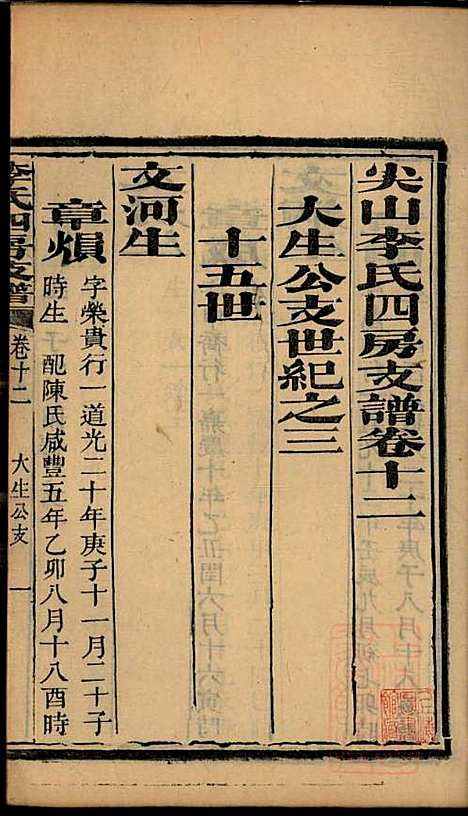 尖山李氏四房支譜卷十二
大生公支世紀之三
十五世
文河生
章熉
字榮貴行一道光二十年庚子十一月二十子
時生 配陳氏咸豐五年乙卯八月十八酉時
李氏四房支譜 卷十二 大生公支 一